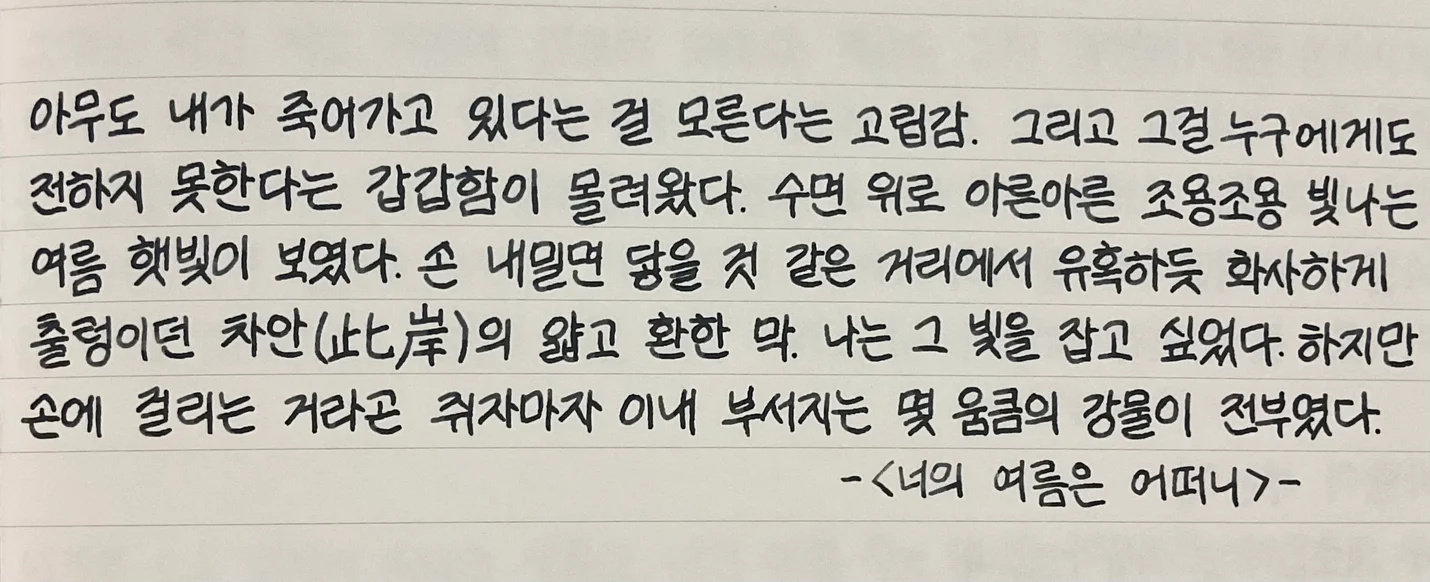 아무도 내가 죽어가고 있다는 걸 모른다는 고립감. 그리고 그걸 누구에게도
전하지 못한다는 갑갑함이 몰려왔다. 수면 위로 아른아른 조용조용 빛나는
여름 햇빛이 보였다. 손 내밀면 닿을 것 같은 거리에서 유혹하듯 화사하게
출렁이던 차안(此岸)의 얇고 환한 막. 나는 그 빛을 잡고 싶었다. 하지만
손에 걸리는 거라곤 쥐자마자 이내 부서지는 몇 움큼의 강물이 전부였다.
-<너의 여름은 어떠니>-